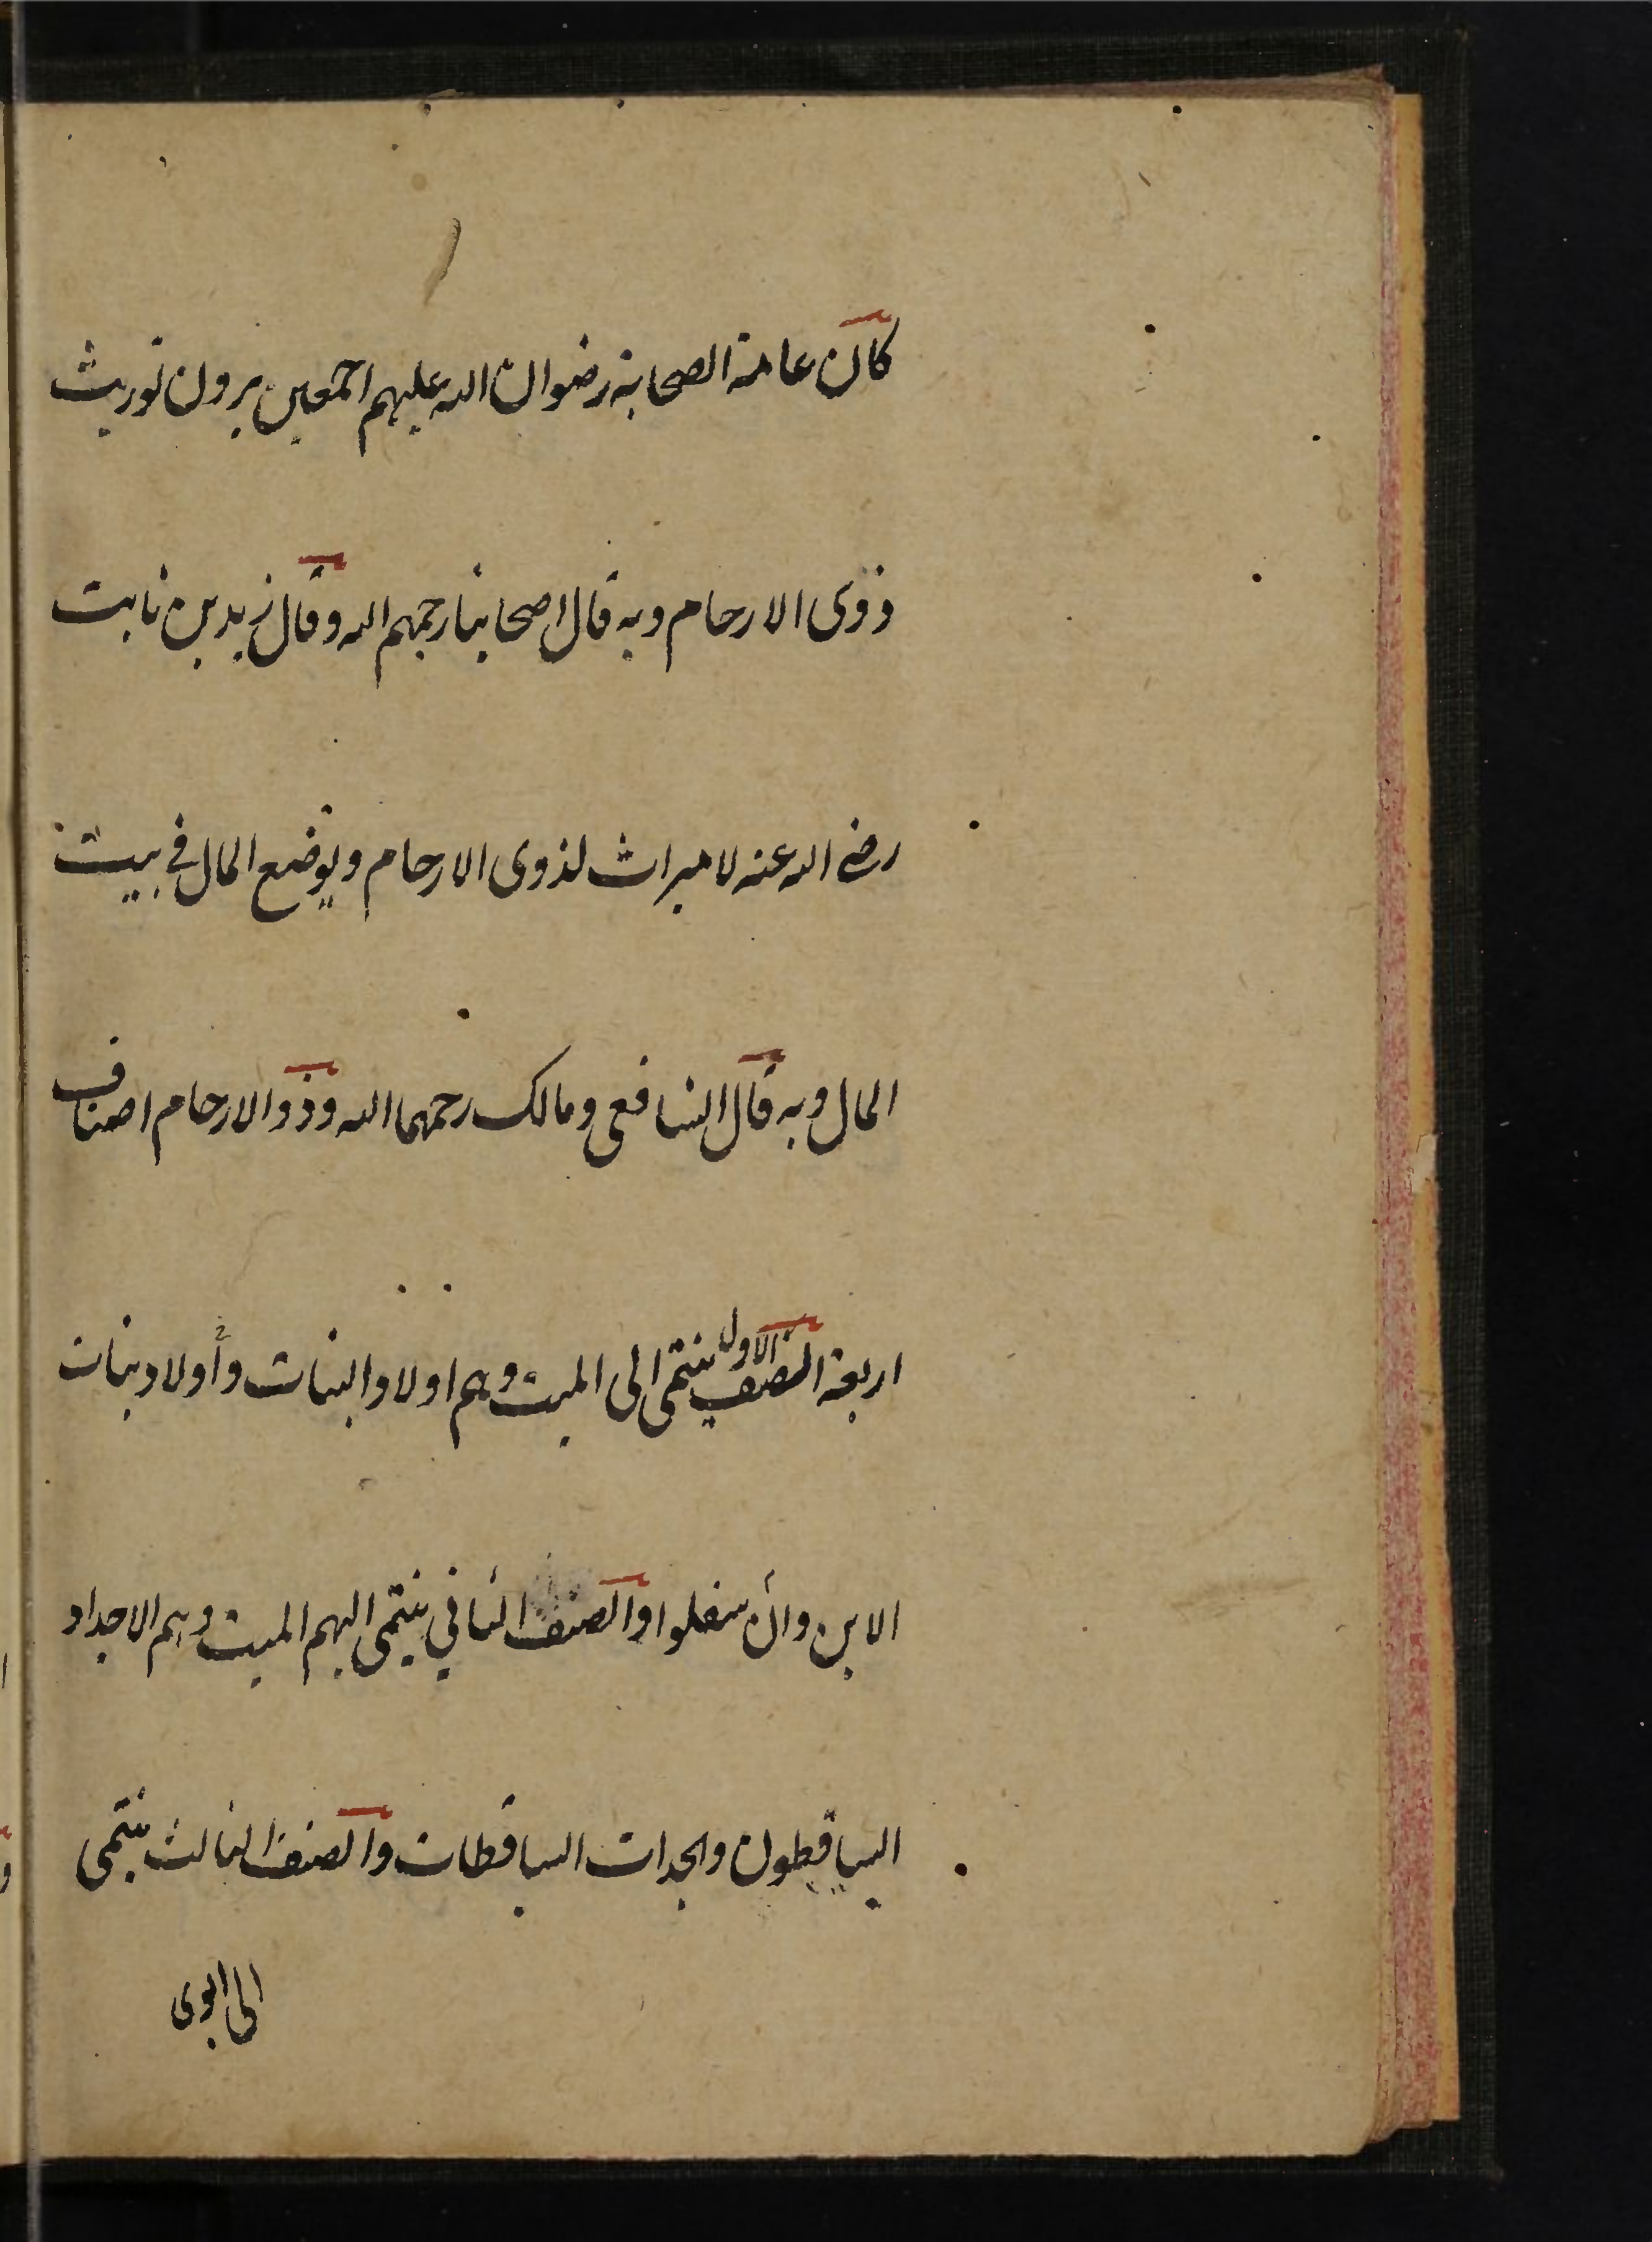 كان عامة الصحابة رضوان الله عليهم اجمعين يرون توريث
ذوى الارحام وبه قال اصحابنا رحمهم الله وقال زيد بن ثابت
رضى الله عنه لا ميراث لذوى الارحام ويوضع المال فى بيت
المال وبه قال الشافعى ومالك رحمهما الله وذو الارحام اصناف
اربعة الصنف الاول ينتمى الى الميت وهم اولاد البنات وأولاد بنات
الابن وان سفلوا والصنف الثانى ينتمى اليهم الميت وهم الاجداد
الساقطون والجدات الساقطات والصنف الثالث ينتمى
الى ابوى